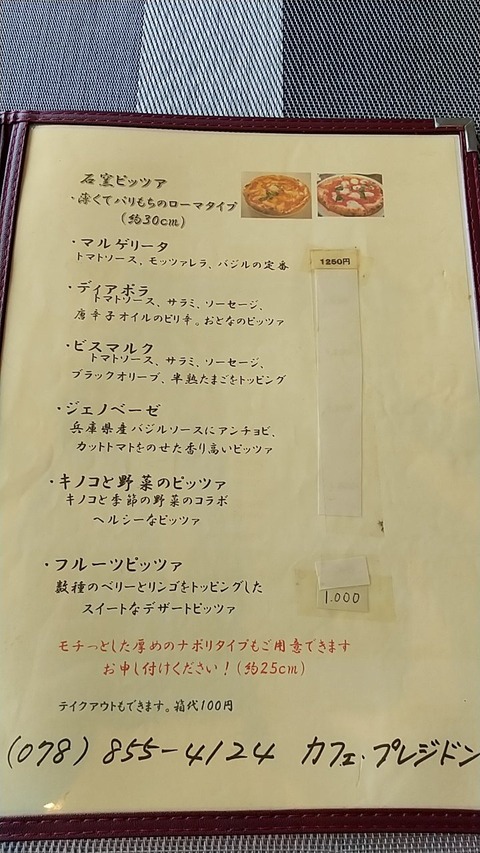 石窯ピッツア
・薄くてパリもちのローマタイプ
(約30cm)
・マルゲリータ
トマトソース、モッツァレラ、バジルの定番
1250円
・ディアボラ
トマトソース、サラミ、ソーセージ、
唐辛子オイルのピリ辛。おとなのピッツァ
・ビスマルク
トマトソース、サラミ、ソーセージ、
ブラックオリーブ、半熟たまごをトッピング
・ジェノベーゼ
兵庫県産バジルソースにアンチョビ、
カットトマトをのせた香り高いピッツァ
・キノコと野菜のピッツァ
キノコと季節の野菜のコラボ
ヘルシーなピッツァ
・フルーツピッツァ
数種のベリーとリンゴをトッピングした
スイートなデザートピッツァ
1.000
モチっとした厚めのナポリタイプもご用意できます
お申し付けください！(約25cm)
テイクアウトもできます。箱代100円
(078) 855-4124 カフェ・プレジドン